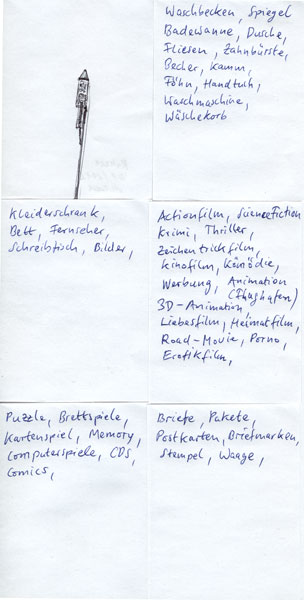 Waschbecken, Spiegel
Badewanne, Dusche,
Fliesen, Zahnbürste,
Becher, Kamm,
Föhn, Handtuh,
Waschmaschine,
Wäschekorb
Kleiderschrank,
Bett, Fernseher,
Schreibtisch, Bilder,
Actionfilm, ScienceFiction
Krimi, Thriller,
Zeichentrickfilm,
Kinofilm, Komödie,
Werbung, Animation
(Flughafen)
3D-Animation,
Liebesfilm, Heimatfilm,
Road-Movie, Porno,
Erotikfilm,
Puzzle, Brettspiele,
Kartenspiel, Memory,
Computerspiele, CDs,
Comics,
Briefe, Pakete,
Postkarten, Briefmarken,
Stempel, Waage,